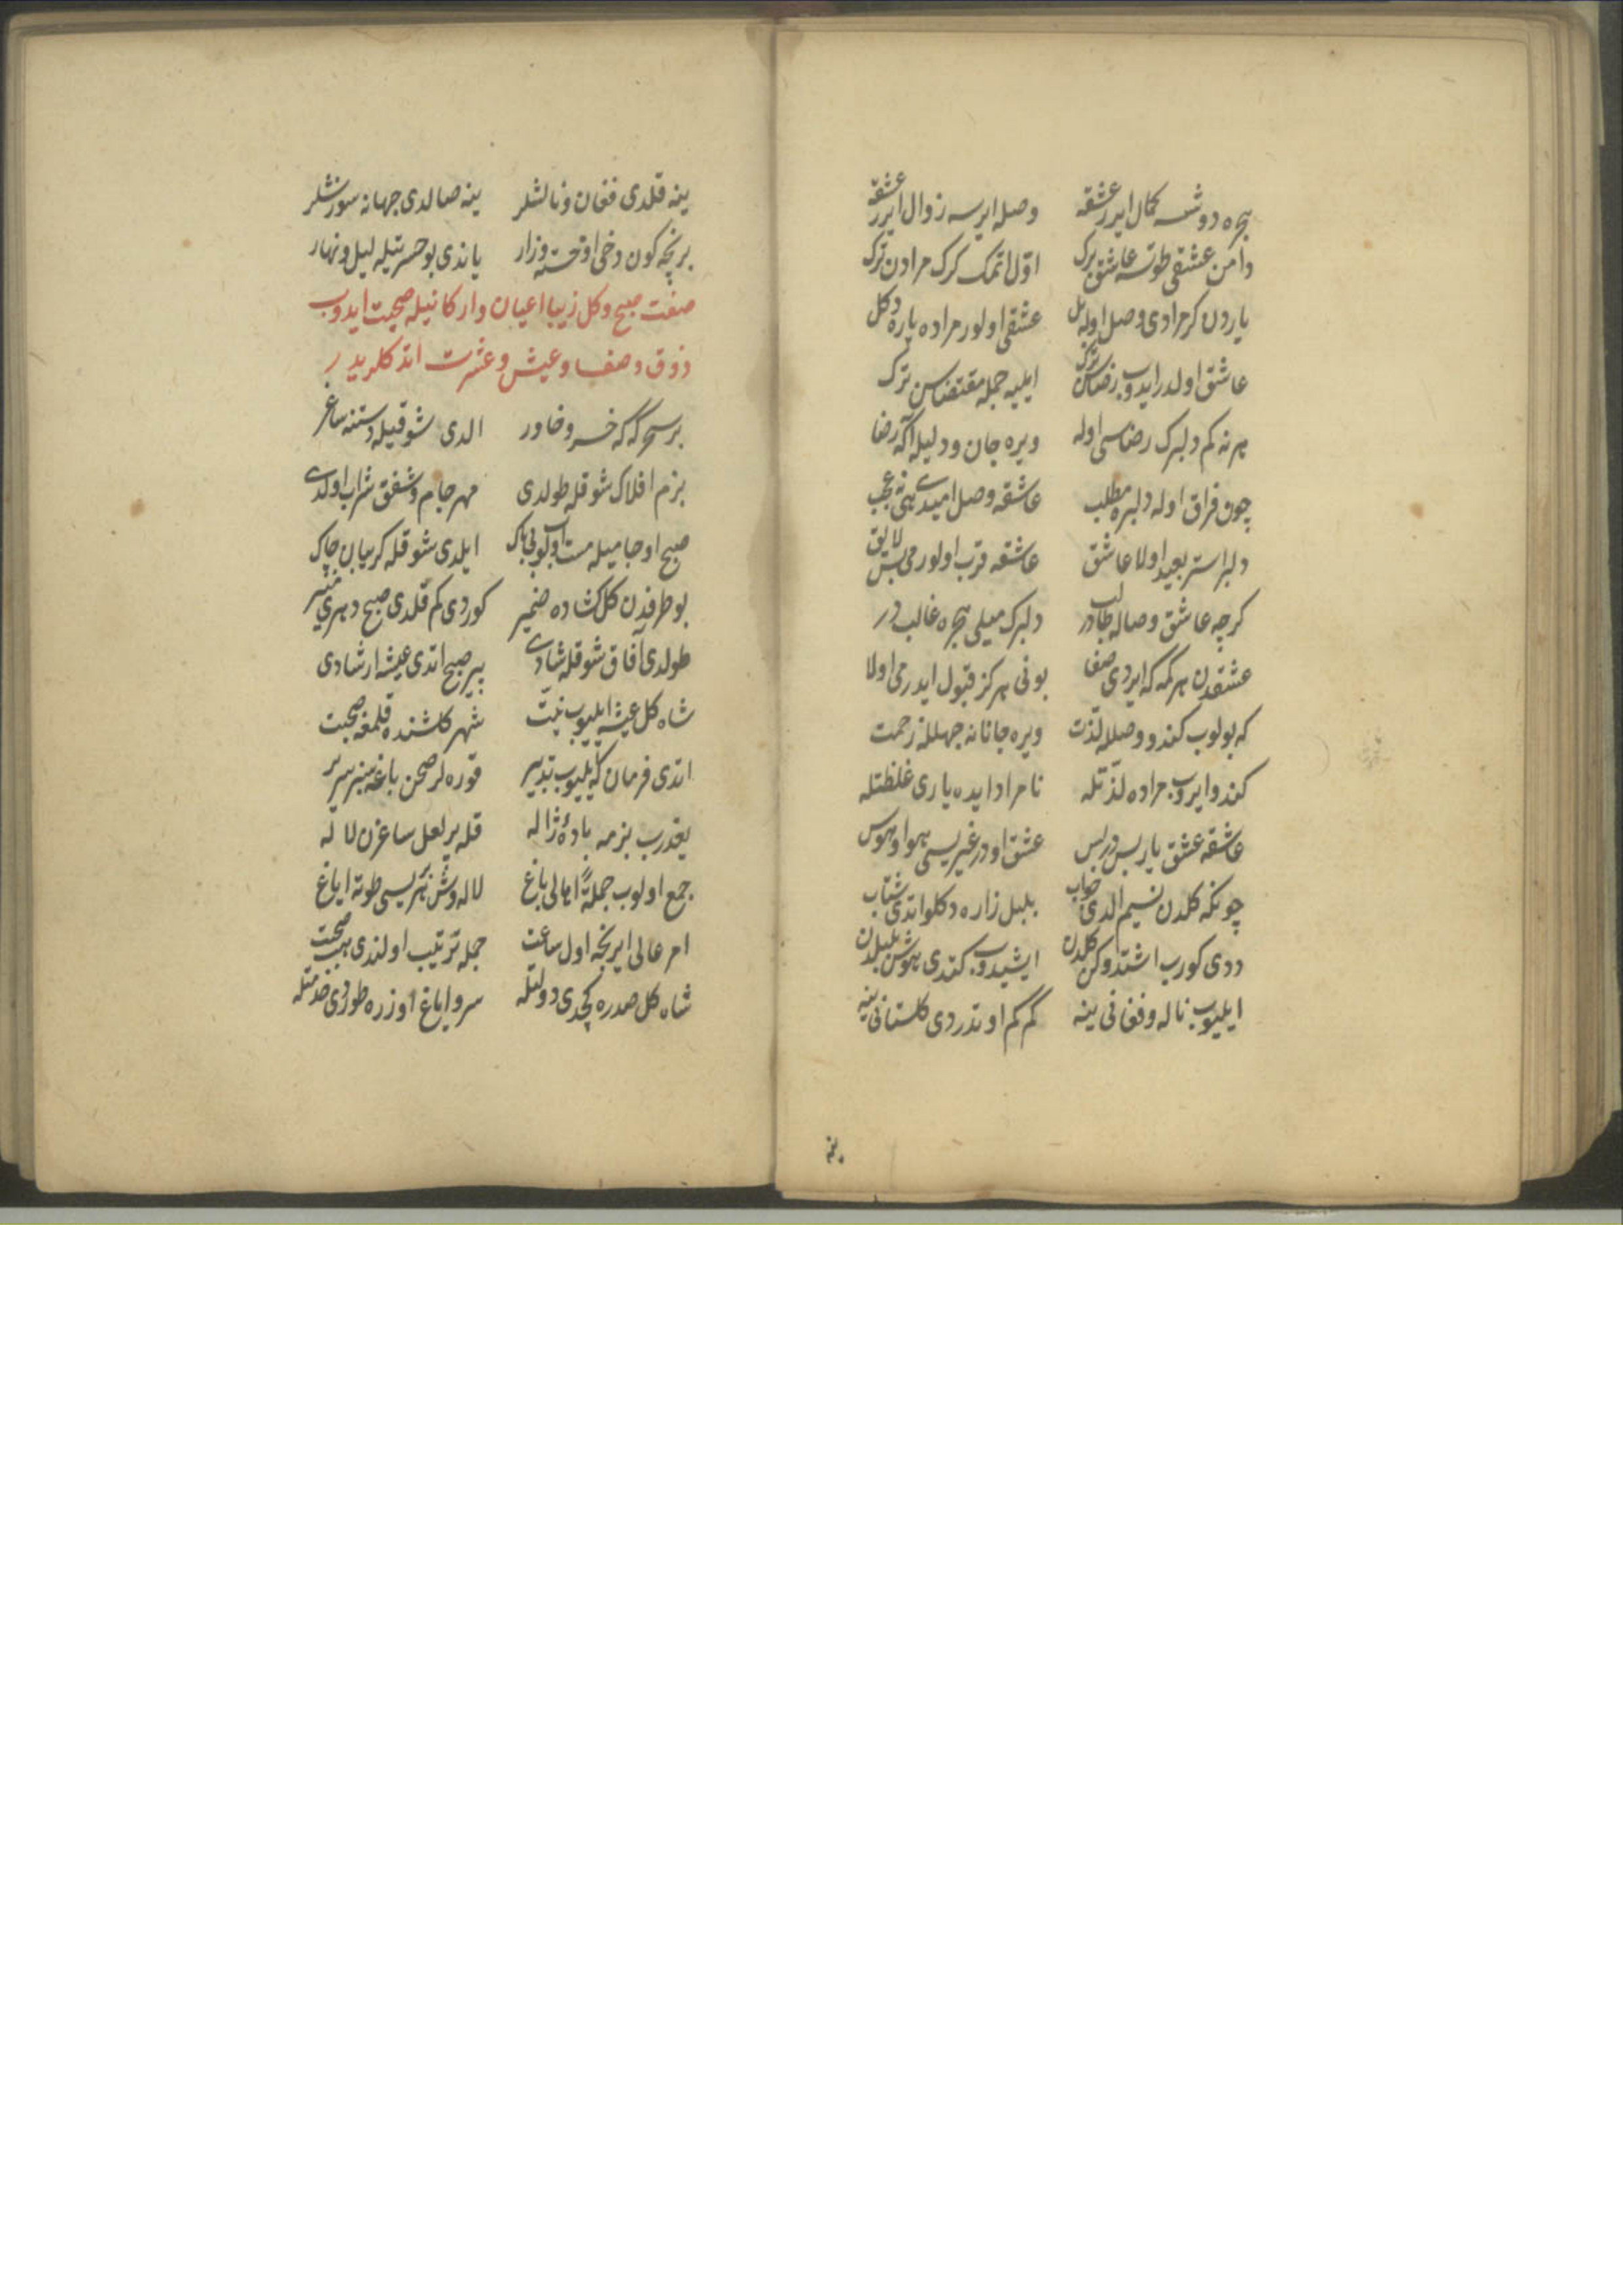 هجره دوشسه کمال ایرر عشقه وصله ایرسه زوال ایرر عشقه
دامن عشقی طوتسه عاشق برک اول اتمک کرک مرادن ترک
یاردن کر مرادی وصل اوله بل عشقی اولور مراده یاره دکل
عاشق اولدر ایدوب رضاسن ترک ایلیه جمله مقتضاسن ترک
هر نه کم دلبرک رضاسی اوله ویره جان ودلیله اکه رضا
چون فراق اوله دلبره مطلب عاشقه وصل امیدی نه عجب
دلبر استر بعید اولا عاشق عاشقه قرب اولورمی بس لایق
کرچه عاشق وصاله طالبدر دلبرک میلی هجره غالبدر
عشقدن هر کمه که ایردی صفا بونی هرکز قبول ایدرمی اولا
که بولوب کندو وصلله لذت ویره جانانه جهلله زحمت
کندو ایروب مراده لذتله نامراد ایده یاری غلظتله
عاشقه عشق یار بس در بس عشق اودر غیریسی هوا وهوس
چونکه کلدن نسیم الدی جواب بلبل زاره دکلو اتدی شتاب
ددی کورب اشتدوکن کلدن ایشیدوب کتدی هوش بلبلدن
ایلیوب ناله وفغانی ینه کم کم اوتدردی کلستانی ینه
ینه
ینه قلدی فغان ونالشلر ینه صالدی جهانه سوزشلر
بر نچه کون دخی او خسته وزار یاندی بو حسرتیله لیل ونهار
صفت صبح وکل زیبا اعیان وارکانیله صحبت ایدوب
ذوق وصفا وعیش وعشرت اتدکلریدر
بر سحرکه که خسرو خاور الدی شوقیله دستنه ساغر
بزم افلاک شوقله طولدی مهر جام وشفق شراب اولدی
صبح او جامیله مست اولوب بی باک ایلدی شوقله کریبان چاک
بو طرفدن کل کشاده ضمیر کوردی کم قلدی صبح دهری منیر
طولدی آفاق شوقله شادی پیر صبح اتدی عیشه ارشادی
شاه کل عیشه ایلیوب نیت شهر کلشنده قلمغه صحبت
اتدی فرمان که ایلیوب تدبیر قوره لر صحن باغه سبز سریر
یغدرب بزمه بادۀ ژاله قله پر لعل ساغرن لاله
جمع اولوب جملةً اهالی باغ لاله وش هر بریسی طوته ایاغ
امر عالی ایرنجه اول ساعت جمله ترتیب اولندی هب صحبت
شاه کل صدره کچدی دولتله سرو ایاغ اوزره طوردی خدمتله